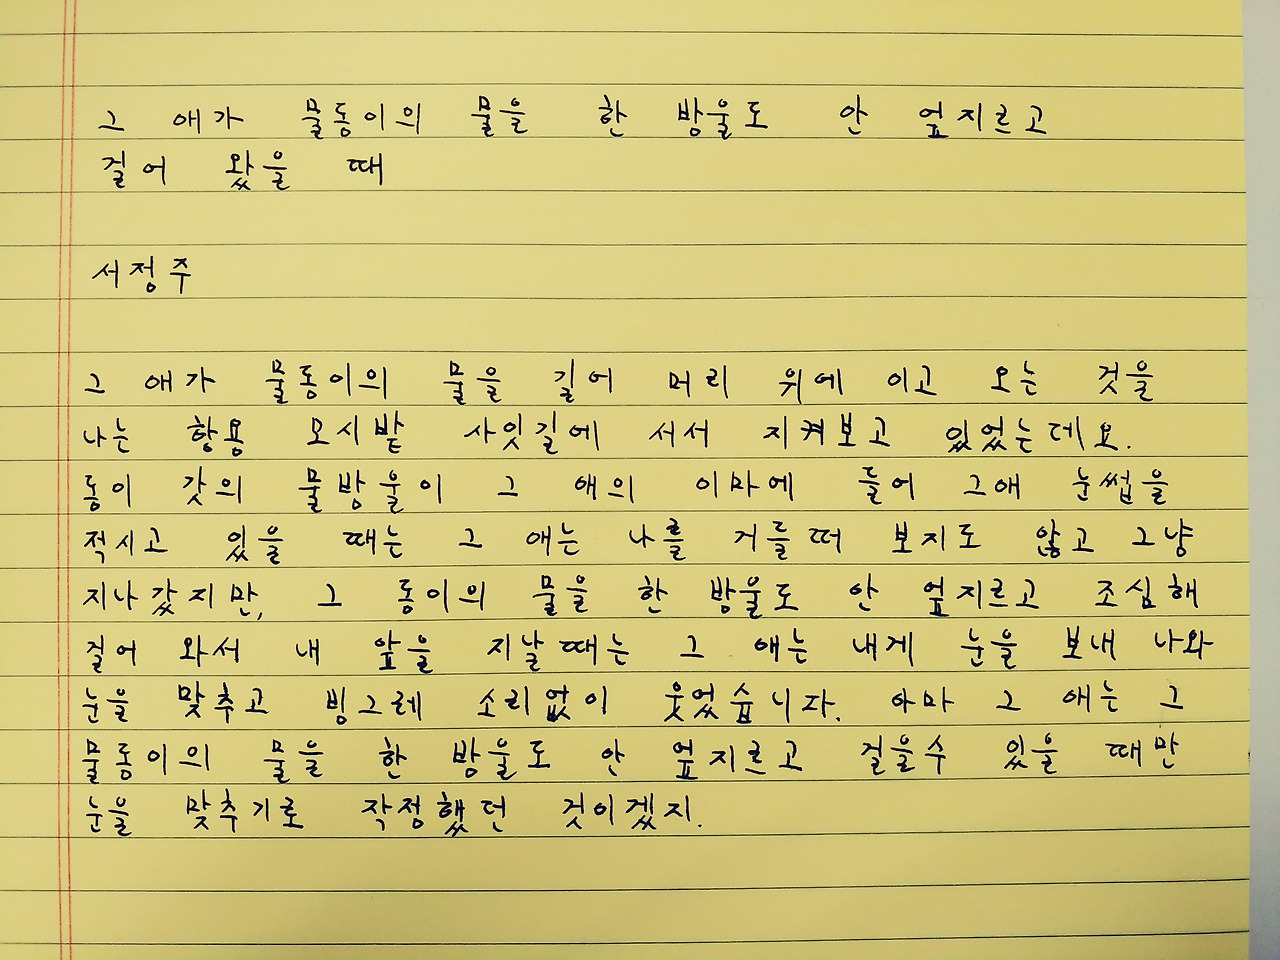 그 애가 물동이의 물을 한 방울도 안 엎지르고
걸어 왔을 때
서정주
그 애가 물동이의 물을 길어 머리 위에 이고 오는 것을
나는 항용 모시밭 사잇길에 서서 지켜보고 있었는데요.
동이 갓의 물방울이 그 애의 이마에 들어 그애 눈썹을
적시고 있을 때는 그 애는 나를 거들떠 보지도 않고 그냥
지나갔지만, 그 동이의 물을 한 방울도 안 엎지르고 조심해
걸어 와서 내 앞을 지날때는 그 애는 내게 눈을 보내 나와
눈을 맞추고 빙그레 소리없이 웃었습니다. 아마 그 애는 그
물동이의 물을 한 방울도 안 엎지르고 걸을수 있을 때만
눈을 맞추기로 작정했던 것이겠지.